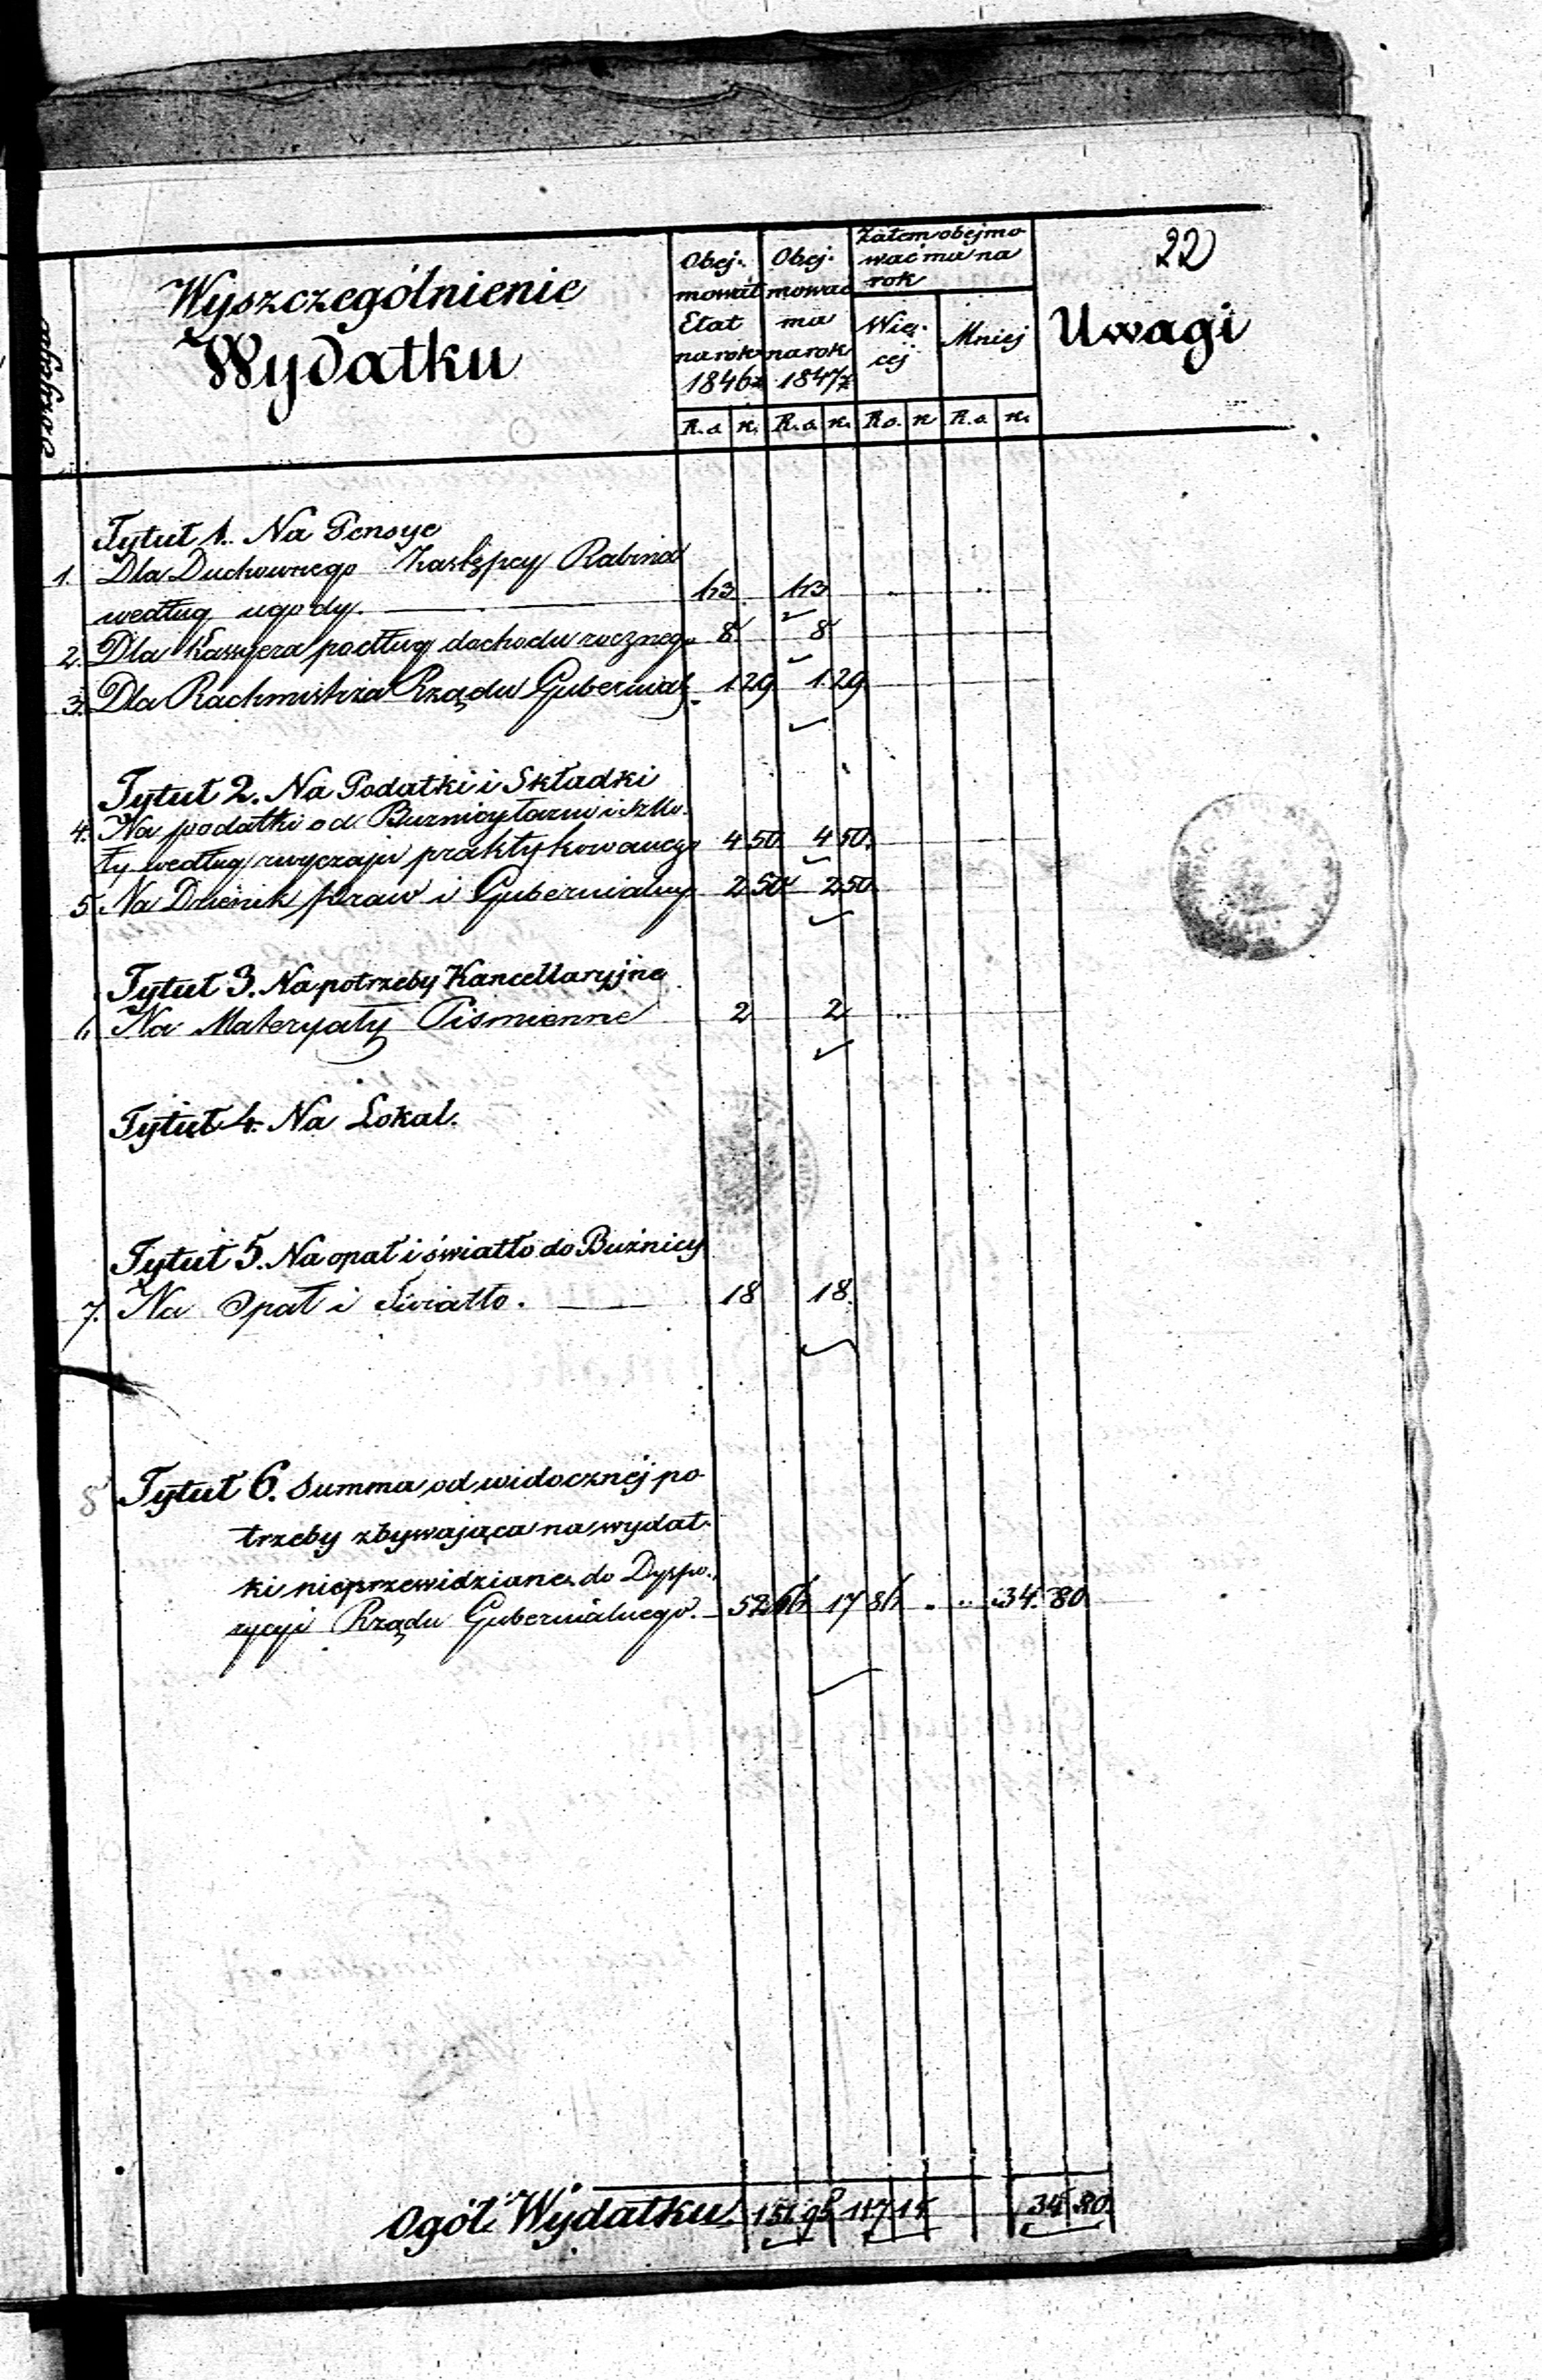 22
Liczba porządkowa
Wyszczególnienie
Wydatku
Obej-
mował
Etat
na rok
1846/7
Obej-
mować
ma
na rok
1847/8
Zatem obejmo
wać ma na
rok
Wię-
cej
Mniej
Uwagi
R.s. k. R.s. k. R.s. k R.s. k.
Tytuł 1. Na Pensye
1. Dla Duchownego Zastępcy Rabina
według ugody. 63 63
2. Dla Kassyera podług dochodu rocznego 8 8
3. Dla Rachmistrza Rządu Gubernial. 1 29 1 29
Tytuł 2. Na Podatki i Składki
4. Na podatki od Buznicy łazni i szko
ły według zwyczaju praktykowanego 4 50 4 50.
5. Na Dzienik praw i Gubernialny 2 50 2 50
Tytuł 3. Na potrzeby Kancellaryjne
6. Na Materyały Piśmienne 2 2
Tytuł 4. Na Lokal.
Tytuł 5. Na opał i światło do Bużnicy
7. Na Opał i Światło. 18 18.
8 Tytuł 6. Summa od widocznéj po
trzeby zbywająca na wydat-
ki nieprzewidziane do Dyspo-
zycyi Rządu Gubernialnego. 52 66 17 86 34. 80
Ogół Wydatku. 151 95 117 15 34 80.